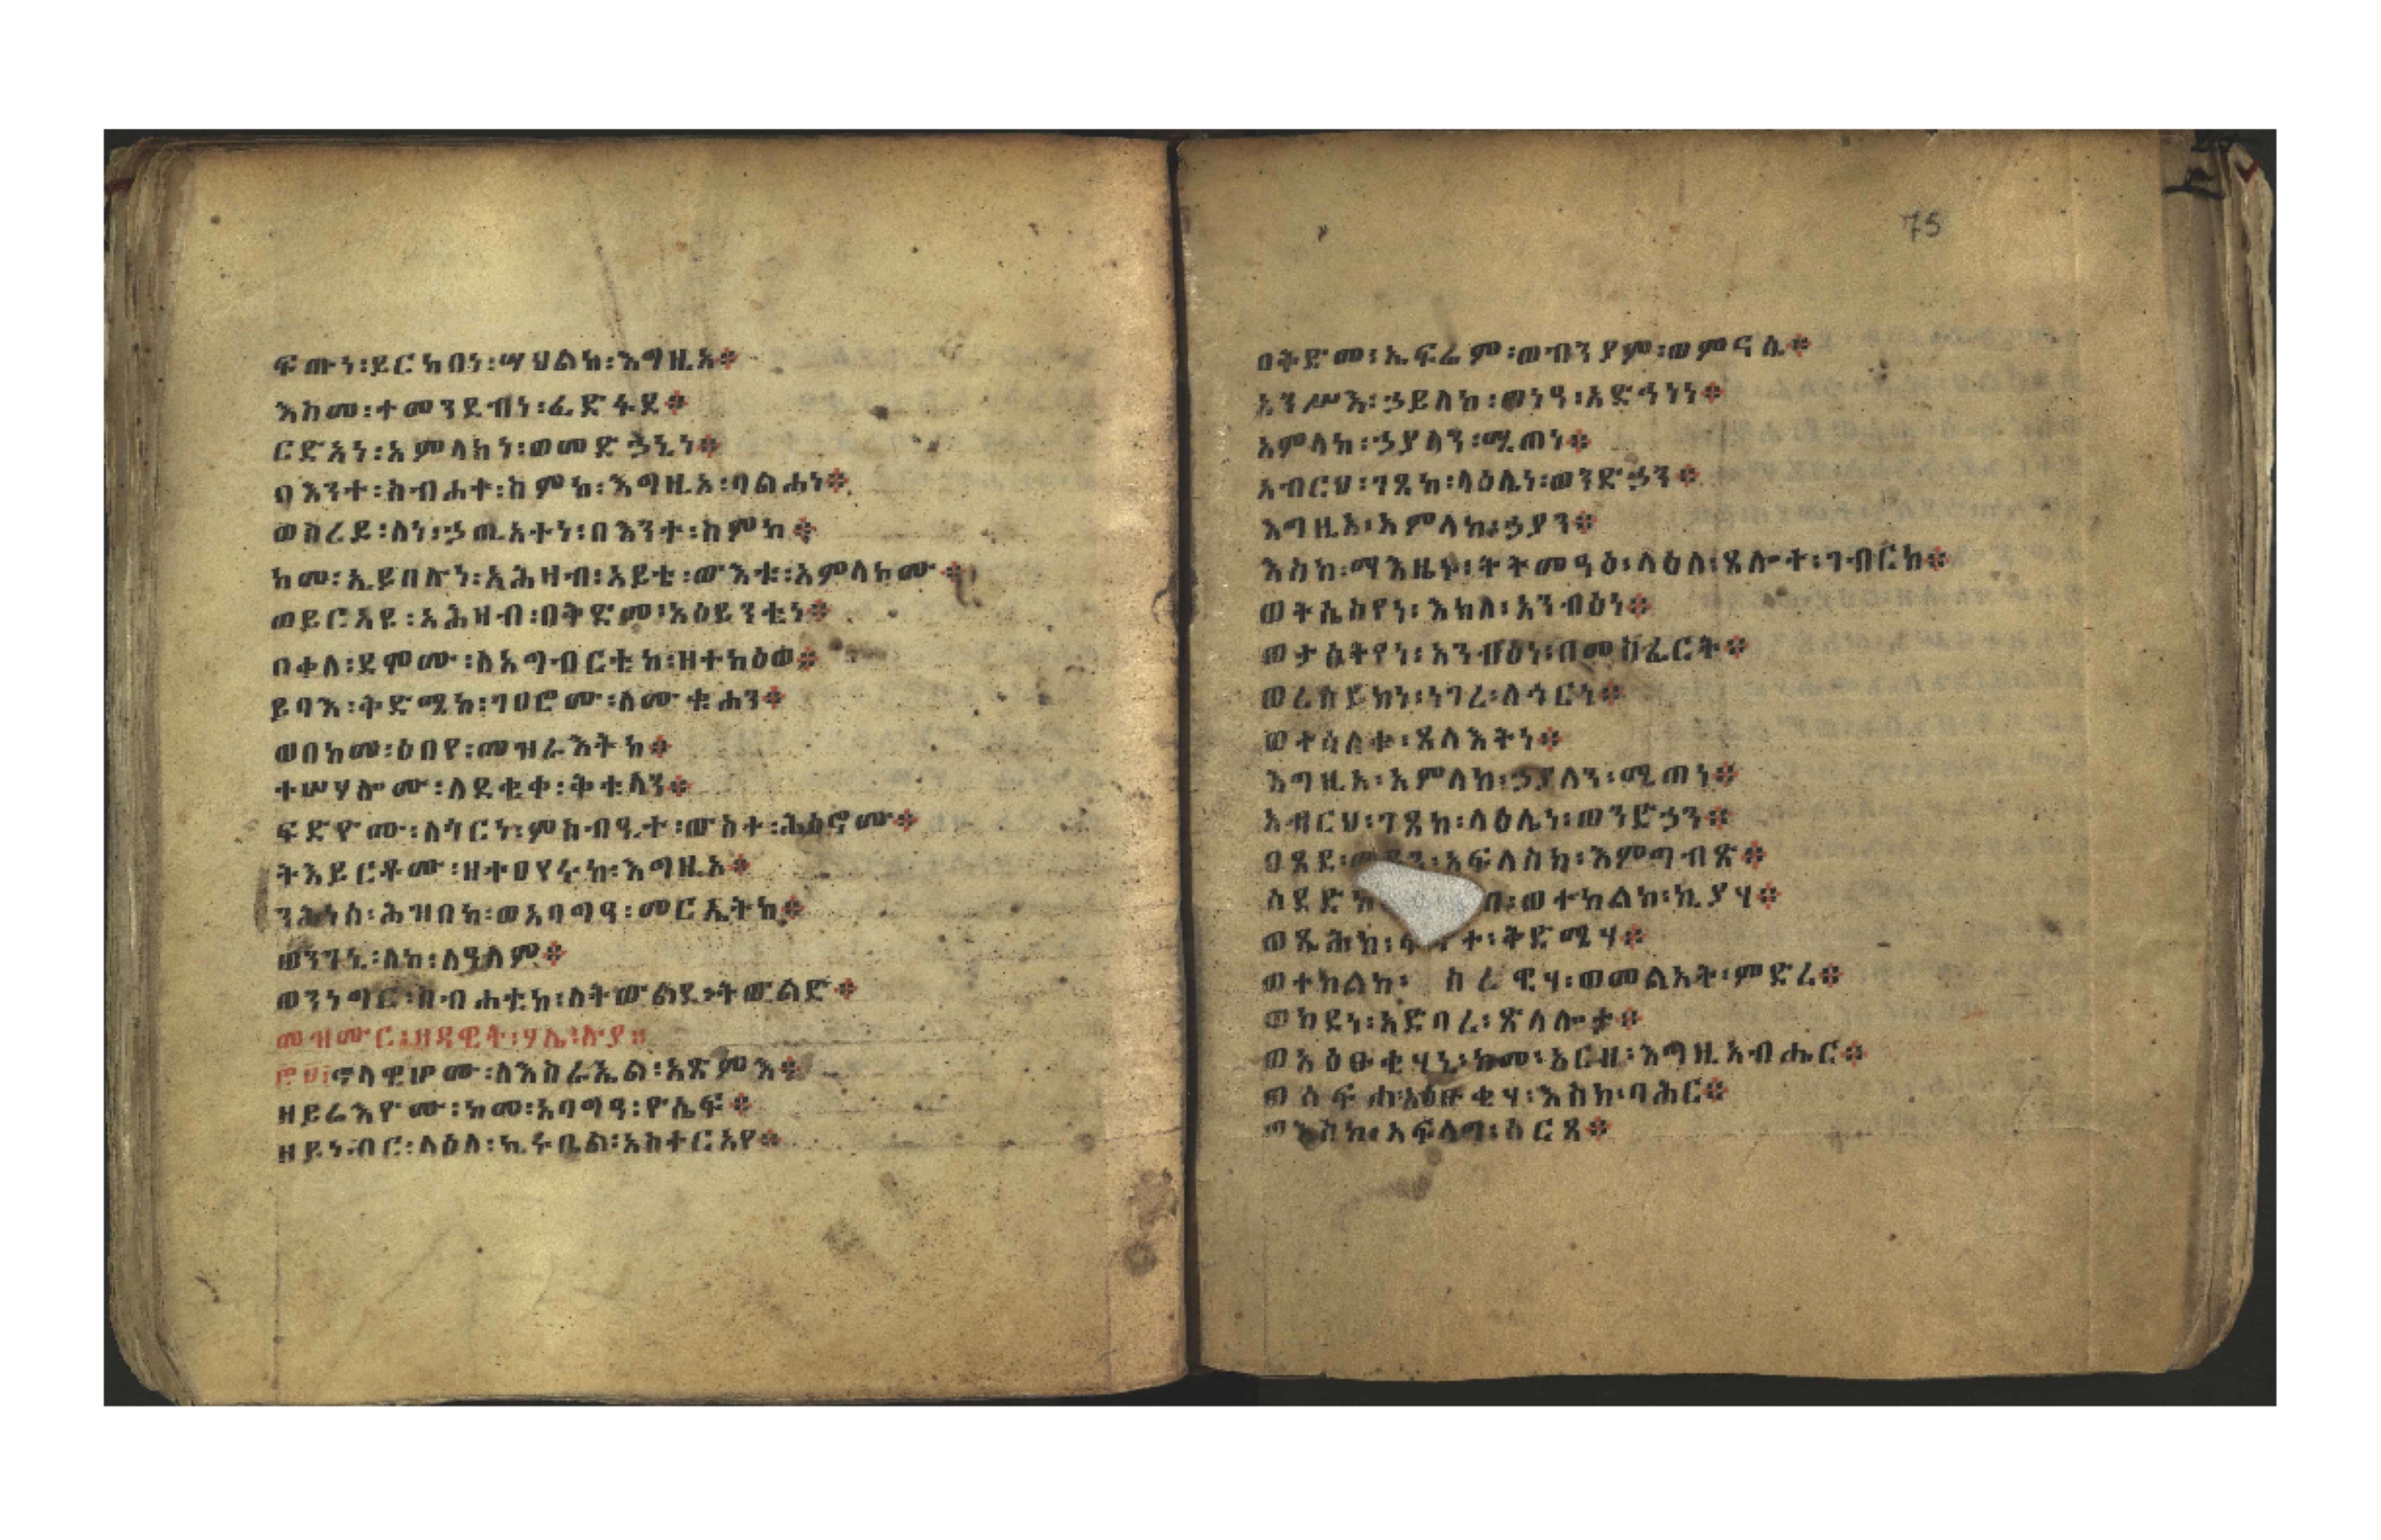 ፍጡነ፡ይርከበነ፡ሣህልከ፡እግዚአ፨
እስመ፡ተመንደብነ፡ፈድፋደ፨
ርድአነ፡አምላክነ፡ወመድኃኒነ፨
በእንተ፡ስብሐተ፡ስምከ፡እግዚአ፡ባልሐነ፨
ወስረይ፡ለነ፡ኃጢአተነ፡በእንተ፡ስምከ፨
ከመ፡ኢይበሉነ፡አሕዛብ፡አይቴ፡ውእቱ፡አምላኮሙ፨
ወይርአዩ፡አሕዛብ፡በቅድመ፡አዕይንቲነ፨
በቀለ፡ደሞሙ፡ለአግብርቲከ፡ዘተክዕወ፨
ይባእ፡ቅድሜከ፡ገዐሮሙ፡ለሙቁሐን፨
ወበከመ፡ዕበየ፡መዝራእትከ፨
ተሣሃሎሙ፡ለደቂቀ፡ቅቱላን፨
ፍድዮሙ፡ለጎርነ፡ምስብዒተ፡ውስተ፡ሕፅኖሙ፨
ትእይርቶሙ፡ዘተዐየሩከ፡እግዚአ፨
ንሕነሰ፡ሕዝበከ፡ወአባግዓ፡መርኤትከ፨
ወንገኒ፡ለከ፡ለዓለም፨
ወንነግር፡ስብሐቲከ፡ለትውልደ፡ትውልድ፨
መዝሙር፡ዘዳዊት፡ሃሌ፡ሉያ።
ኖላዊሆሙ፡ለእስራኤል፡አጽምእ፨
ዘይሬእዮሙ፡ከመ፡አባግዓ፡ዮሴፍ፨
ዘይነብር፡ላዕለ፡ኪሩቤል፡አስተርአየ፨
75
በቅድመ፡ኤፍሬም፡ወብንያም፡ወምናሴ፨
አንሥእ፡ኃይለከ፡ወነዓ፡አድኅነነ፨
አምላከ፡ኃያላን፡ሚጠነ፨
አብርህ፡ገጸከ፡ላዕሌነ፡ወንድኃን፨
እግዚአ፡አምላከ፡ኃያን፨
እስከ፡ማእዜኑ፡ትትመዓዕ፡ላዕለ፡ጸሎተ፡ገብርከ፨
ወትሴስየነ፡እክለ፡አንብዕነ፨
ወታሰትየነ፡አንብዕነ፡በመስፈርት፨
ወረሰይከነ፡ነገረ፡ለጎርነ፨
ወተሳለቁ፡ጸላእትነ፨
እግዚአ፡አምላከ፡ኃያላን፡ሚጠነ፨
አብርህ፡ገጸከ፡ላዕሌነ፡ወንድኃን፨
ዐጸደ፡ወይን፡አፍለስከ፡እምግብጽ፨
ሰደድከ፡ወተከልከ፡ኪያሃ፨
ወጼሕከ፡ቅድሜሃ፨
ወተከልከ፡ ስረዊሃ፡ወመልአት፡ምድረ፨
ወከደነ፡አድባረ፡ጽላሎታ፨
ወአዕፁቂሃኒ፡ከመ፡አርዘ፡እግዚአብሔር፨
ወሰፍሐ፡አዕፁቂሃ፡እስከ፡ባሕር፨
ወእስከ፡አፍላግ፡ሰርጸ፨